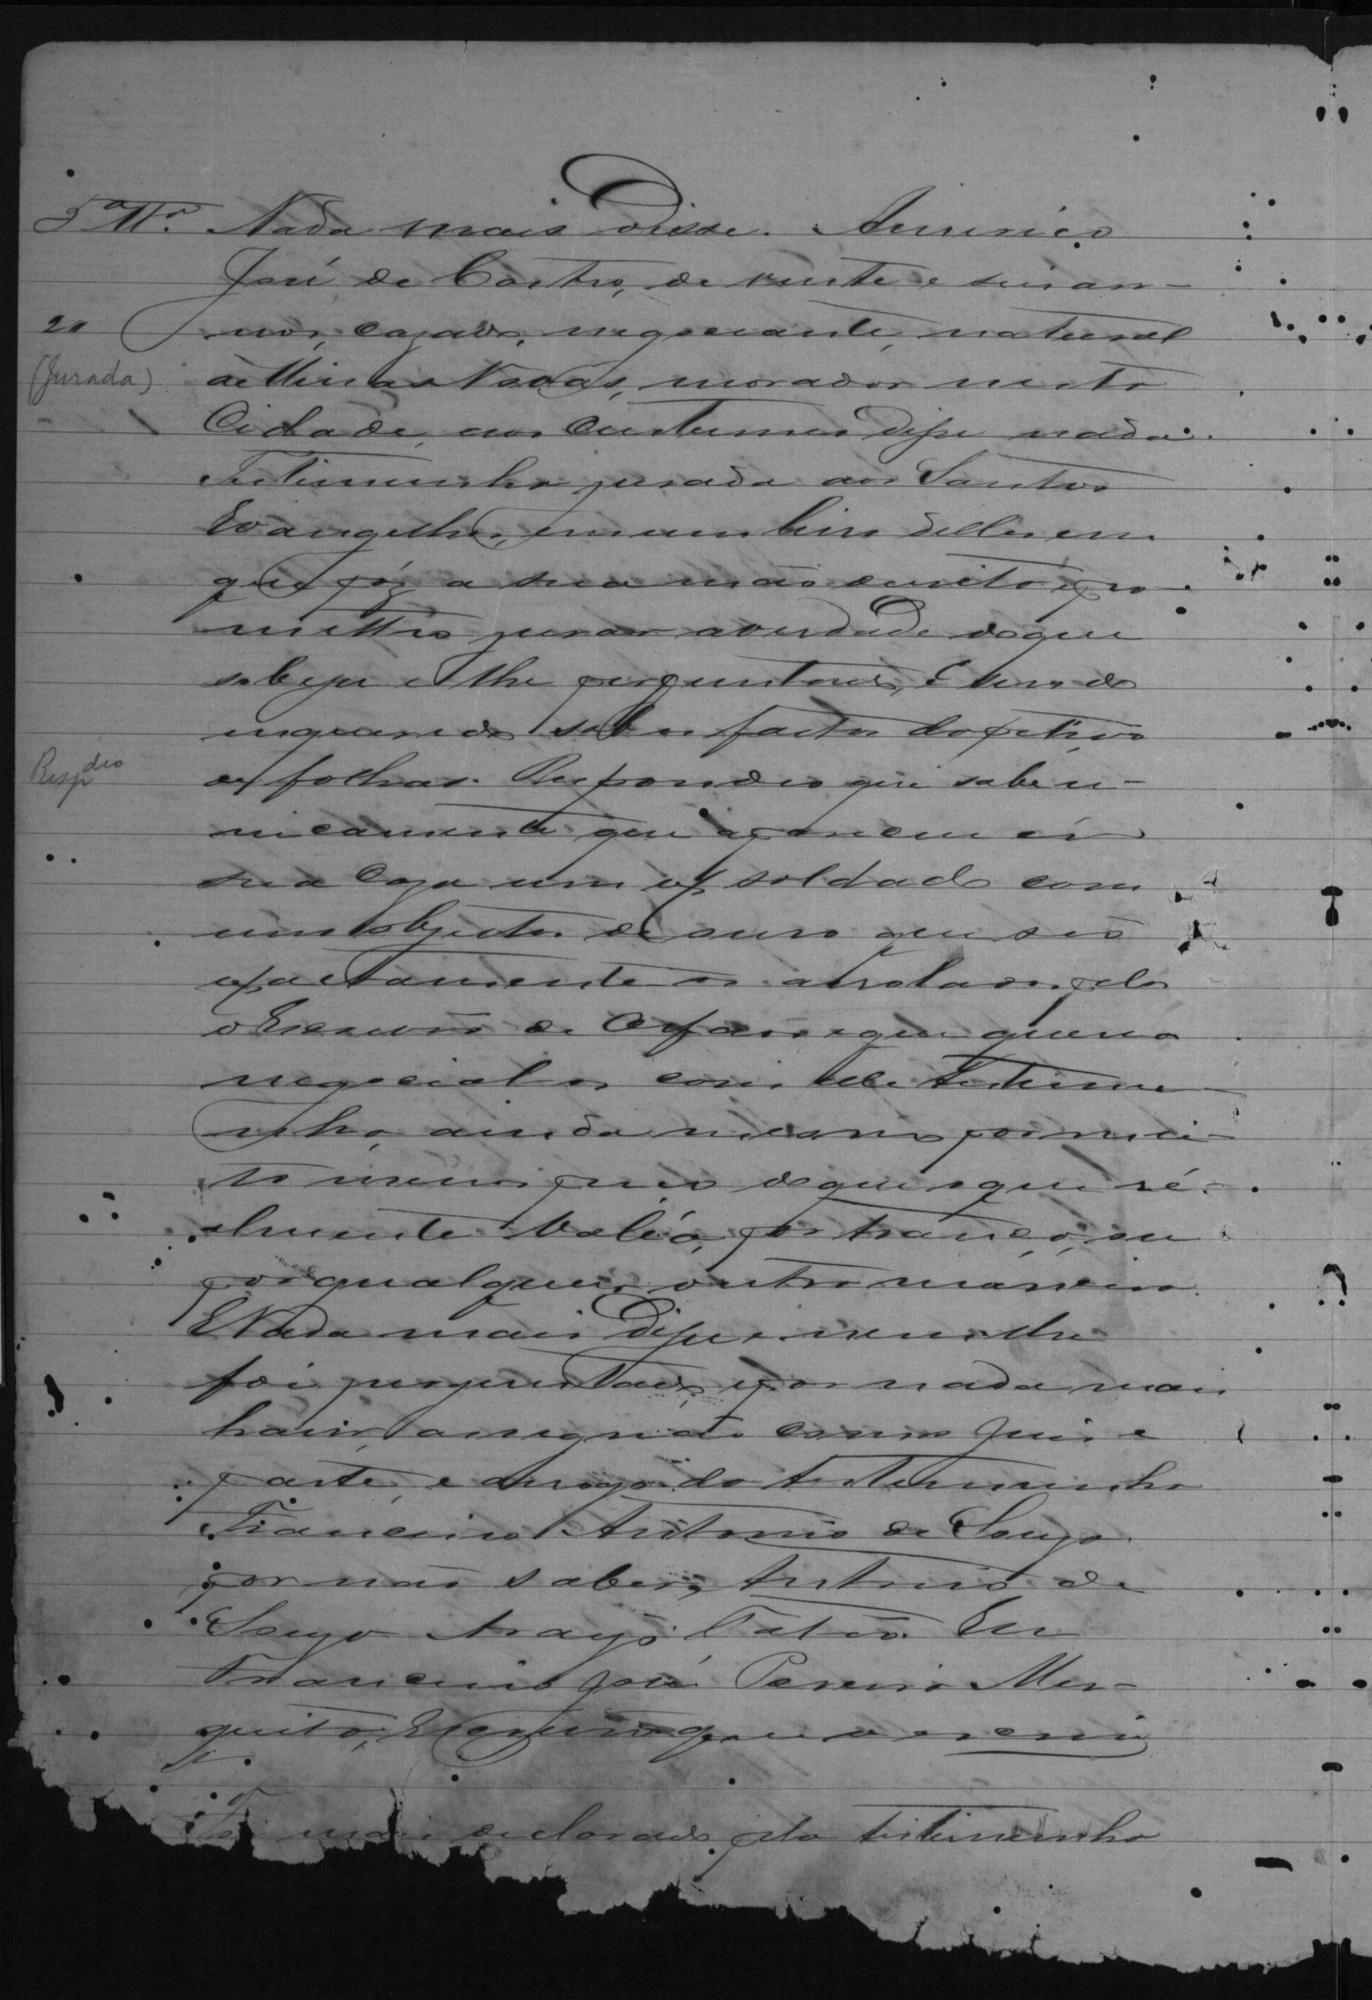 5ª Tt.ª Nada mais disse. Americo
José de Castro, de vinte e seis an-
20 nos, cazado, negociante, natural
(Jurada) de Minas Novas, morador nesta
Cidade, aos custumes disse nada.
Testimunha jurada aos Santos
Evangelhos, em um livro delles em
que pôz a sua mão direita, e pro-
metteo jurar a verdade do que
sobesse e lhe perguntado, E sendo
inquerido sobre factos da petição
de folhas. Respondeo que sabe u-
Resp deo
nicamente que apareceu em
sua caza um ex soldado com
uns objectos de ouro que são
exactamente os arrolados pelo
o Escrivão de Orfãos e que queria
negocial os com elle testimu-
nha, ainda mesmo por mui-
to menos preço do que o que ré-
almente valião, por trança, ou
por qualquer outra maneira.
E Nada mais disse e nem lhe
foi perguntado, e por nada mais
haver, assignão com o Juis e
parte, e a rogo da testemunha
Francisco Antonio de Souza
por não saber, Antonio de
Souza Araujo Catão. Eu
Francisco José Pereira Mes-
quita, Escrivão que o escrevi
Foi mais declarado pela testimunha